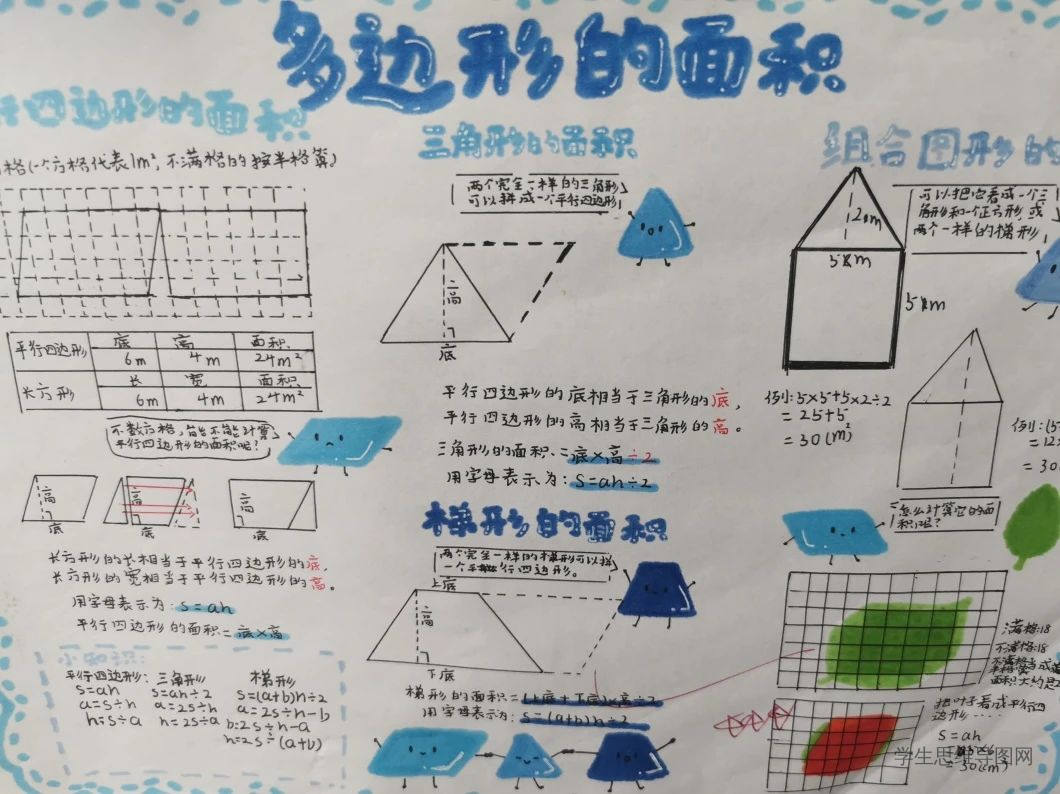 多边形的面积
行四边形的面积
格(一个方格代表1m²,不满格的按半格算)
平行四边形 底 高 面积
6m 4m 24m²
长方形 长 宽 面积
6m 4m 24m²
不数方格,能不能计算
平行四边形的面积呢?
高 高 高
底 底 底
长方形的长相当于平行四边形的底,
长方形的宽相当于平行四边形的高。
用字母表示为:S=ah
平行四边形的面积=底×高
小知识:
平行四边形: 三角形 梯形
S=ah S=ah÷2 S=(a+b)h÷2
a=S÷h a=2S÷h a=2S÷h-b
h=S÷a h=2S÷a b=2S÷h-a
h=2S÷(a+b)
三角形的面积
两个完全一样的三角形
可以拼成一个平行四边形
高
底
平行四边形的底相当于三角形的底,
平行四边形的高相当于三角形的高。
三角形的面积=底×高÷2
用字母表示为:S=ah÷2
梯形的面积
两个完全一样的梯形可以拼
一个平行四边形。
上底
高
下底
梯形的面积=(上底+下底)×高÷2
用字母表示为:S=(a+b)h÷2
组合图形的
可以把它看成一个三
角形和一个正方形,或
两个一样的梯形
2m
5m
5m
例小:5×5+5×2÷2
=25+5
=30(m²)
例小:(5
=12
=30
怎么计算它的面
积呢?
满格:18
不满格:18
不满格当成
面积大约是
把叶子看成平行四
边形····
S=ah
=30(m²)
学生思维导图网